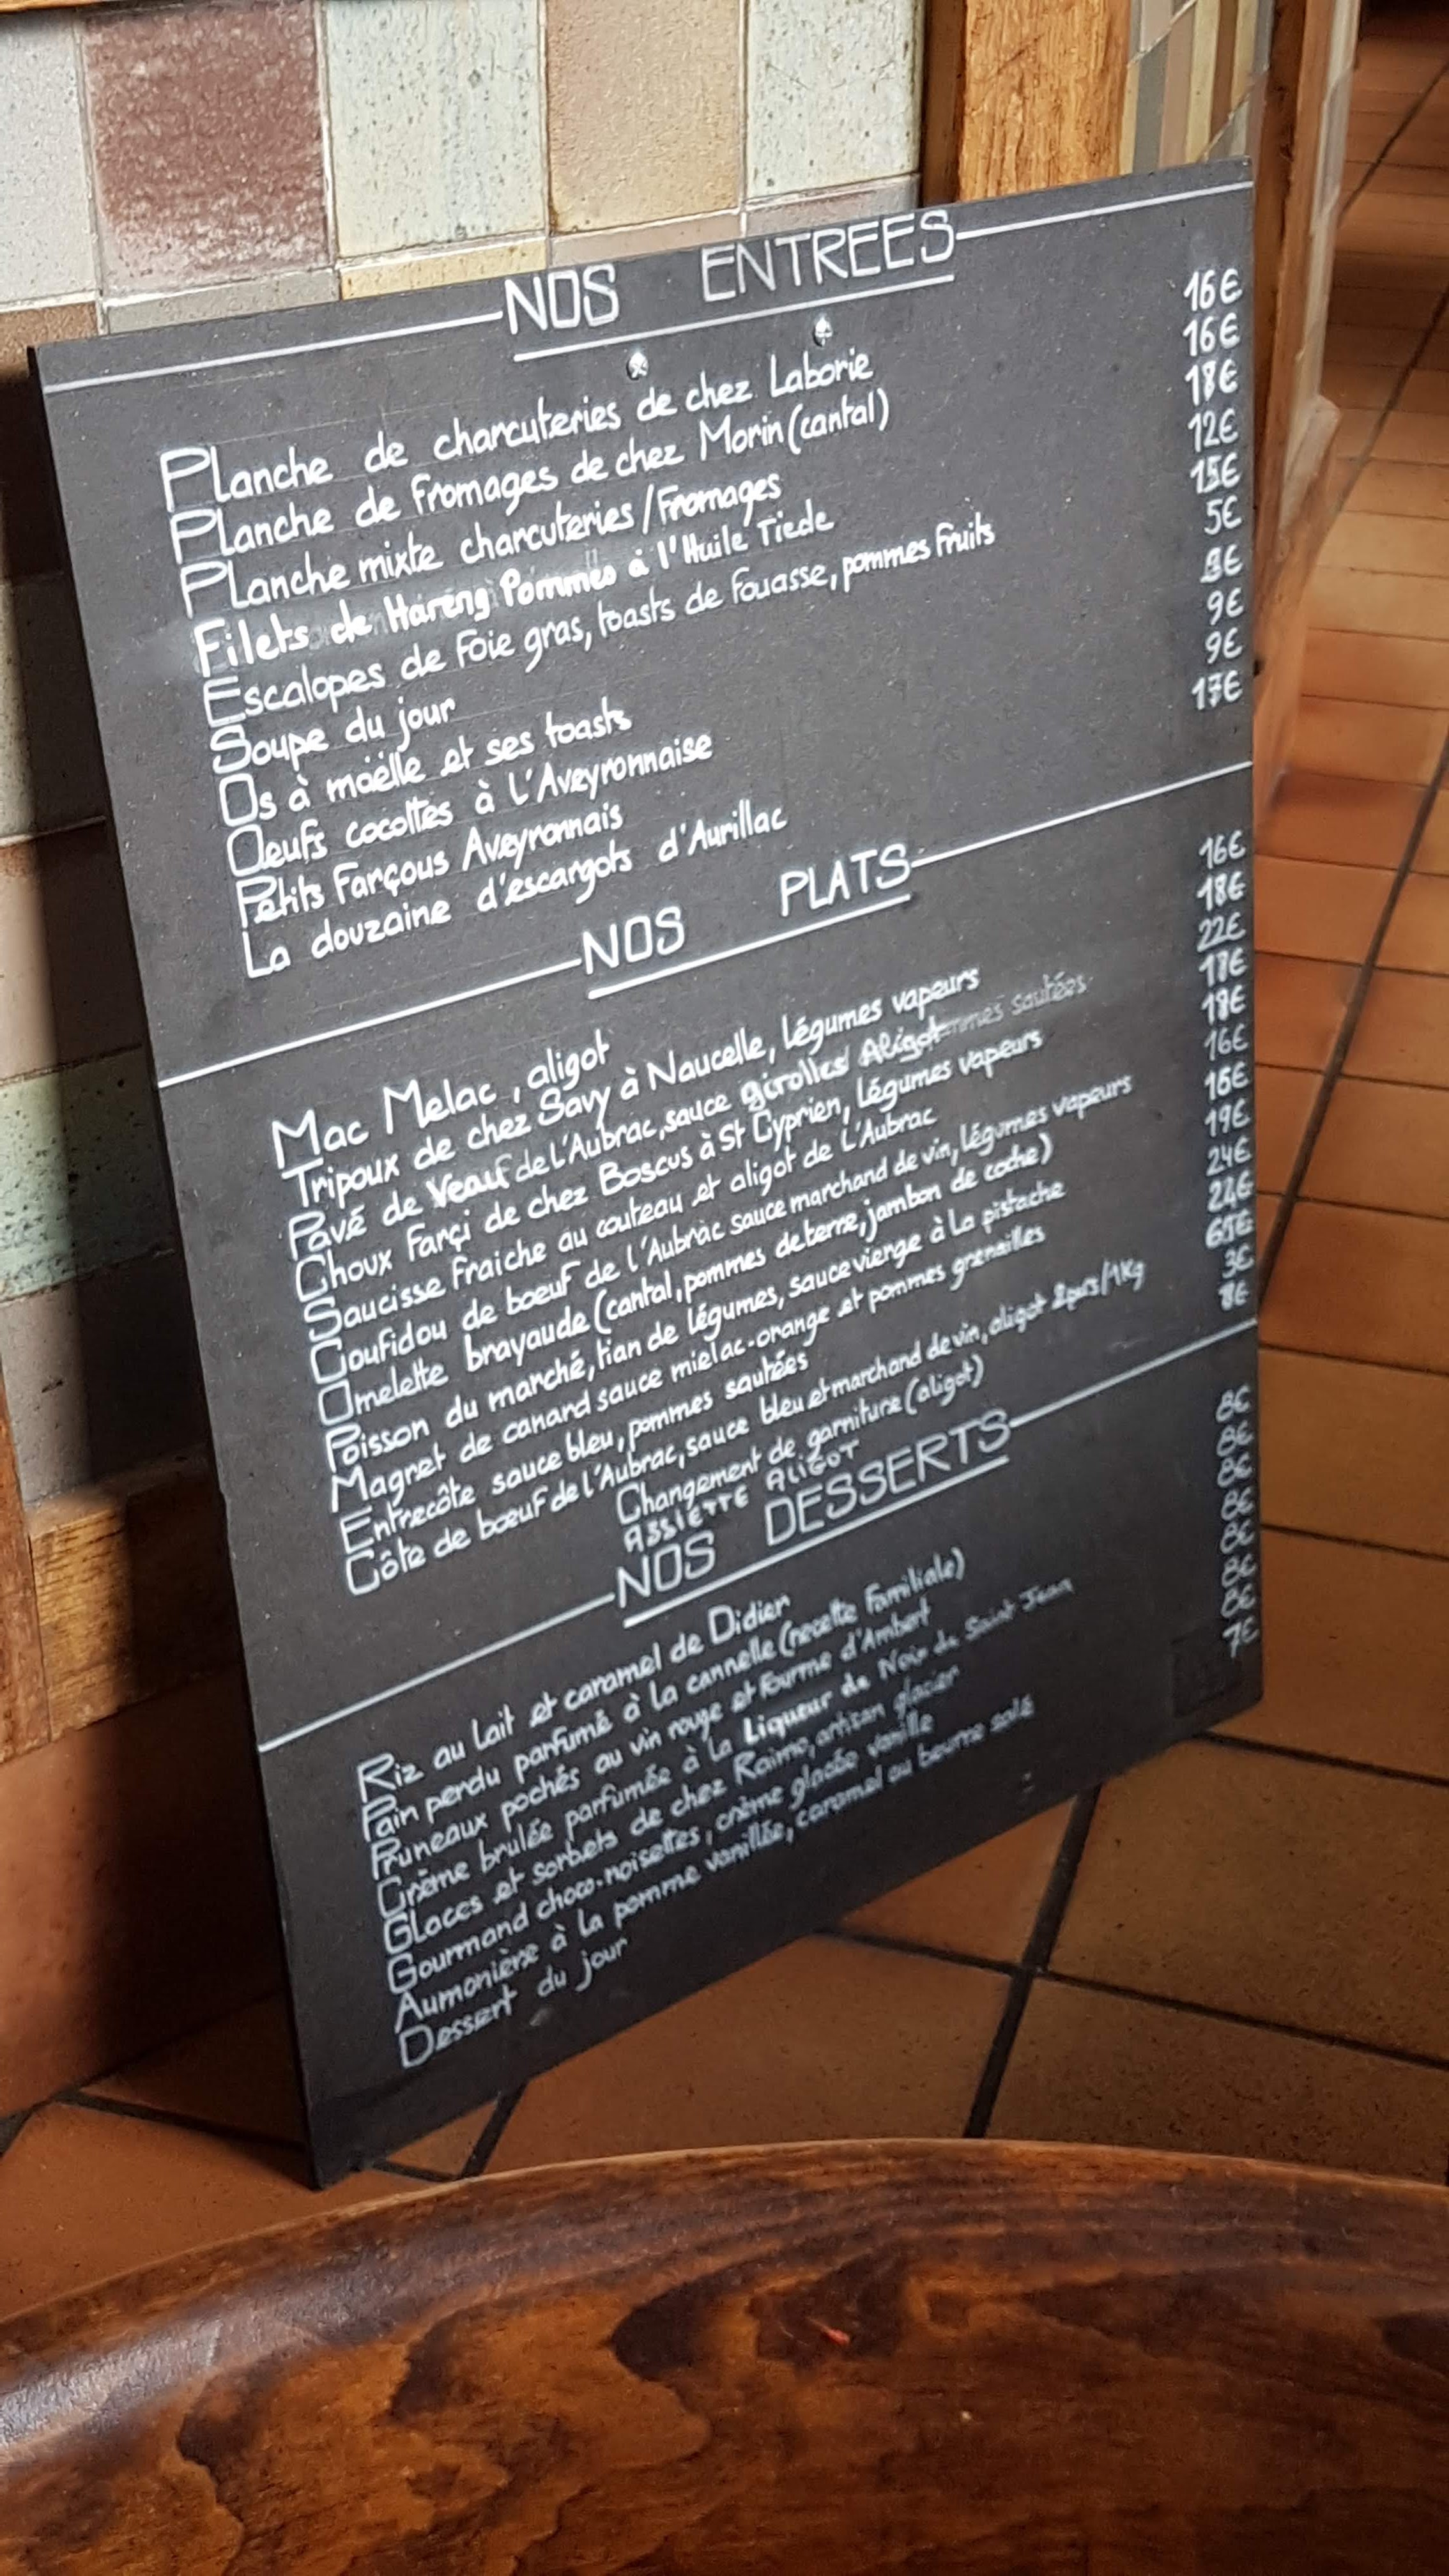 NOS ENTREES
Planche de charcuteries de chez Laborie 16€
Planche de fromages de chez Morin (cantal) 16€
Planche mixte charcuteries/fromages 18€
Filets de Hareng Pommes à l'Huile Tiede 12€
Escalopes de foie gras, toasts de fouasse, pommes fruits 15€
Soupe du jour 5€
Os à moëlle et ses toasts
Oeufs cocottes à l'Aveyronnaise 9€
Petits Farçous Aveyronnais 9€
La douzaine d'escargots d'Aurillac 17€
NOS PLATS
Mac Melac, aligot 16€
Tripoux de chez Savy à Naucelle, légumes vapeurs 18€
Pavé de Veau de l'Aubrac, sauce girolles Aligot sautées 22€
Choux farçi de chez Boscus à St Cyprien, légumes vapeurs
Saucisse fraiche au couteau et aligot de l'Aubrac 18€
Coufidou de boeuf de l'Aubrac sauce marchand de vin, légumes vapeurs 16€
Omelette brayaude (cantal, pommes de terre, jambon de coche) 16€
Poisson du marché, tian de légumes, sauce vierge à la pistache 19€
Magret de canard sauce mielac-orange et pommes grenailles 24€
Entrecôte sauce bleu, pommes sautées
Côte de boeuf de l'Aubrac, sauce bleu et marchand de vin, aligot 2pers/1Kg
Changement de garniture (aligot) 3€
ASSIETTE ALIGOT 8€
NOS DESSERTS
Riz au lait et caramel de Didier 8€
Pain perdu parfumé à la cannelle (recette familiale) 8€
Pruneaux pochés au vin rouge et fourme d'Ambert 8€
Crème brulée parfumée à la Liqueur de Noix de Saint Jean 8€
Glaces et sorbets de chez Raimo, artisan glacier 8€
Gourmand choco-noisettes, crème glacée vanille 8€
Aumonière à la pomme vanillée, caramel au beurre salé 8€
Dessert du jour 7€